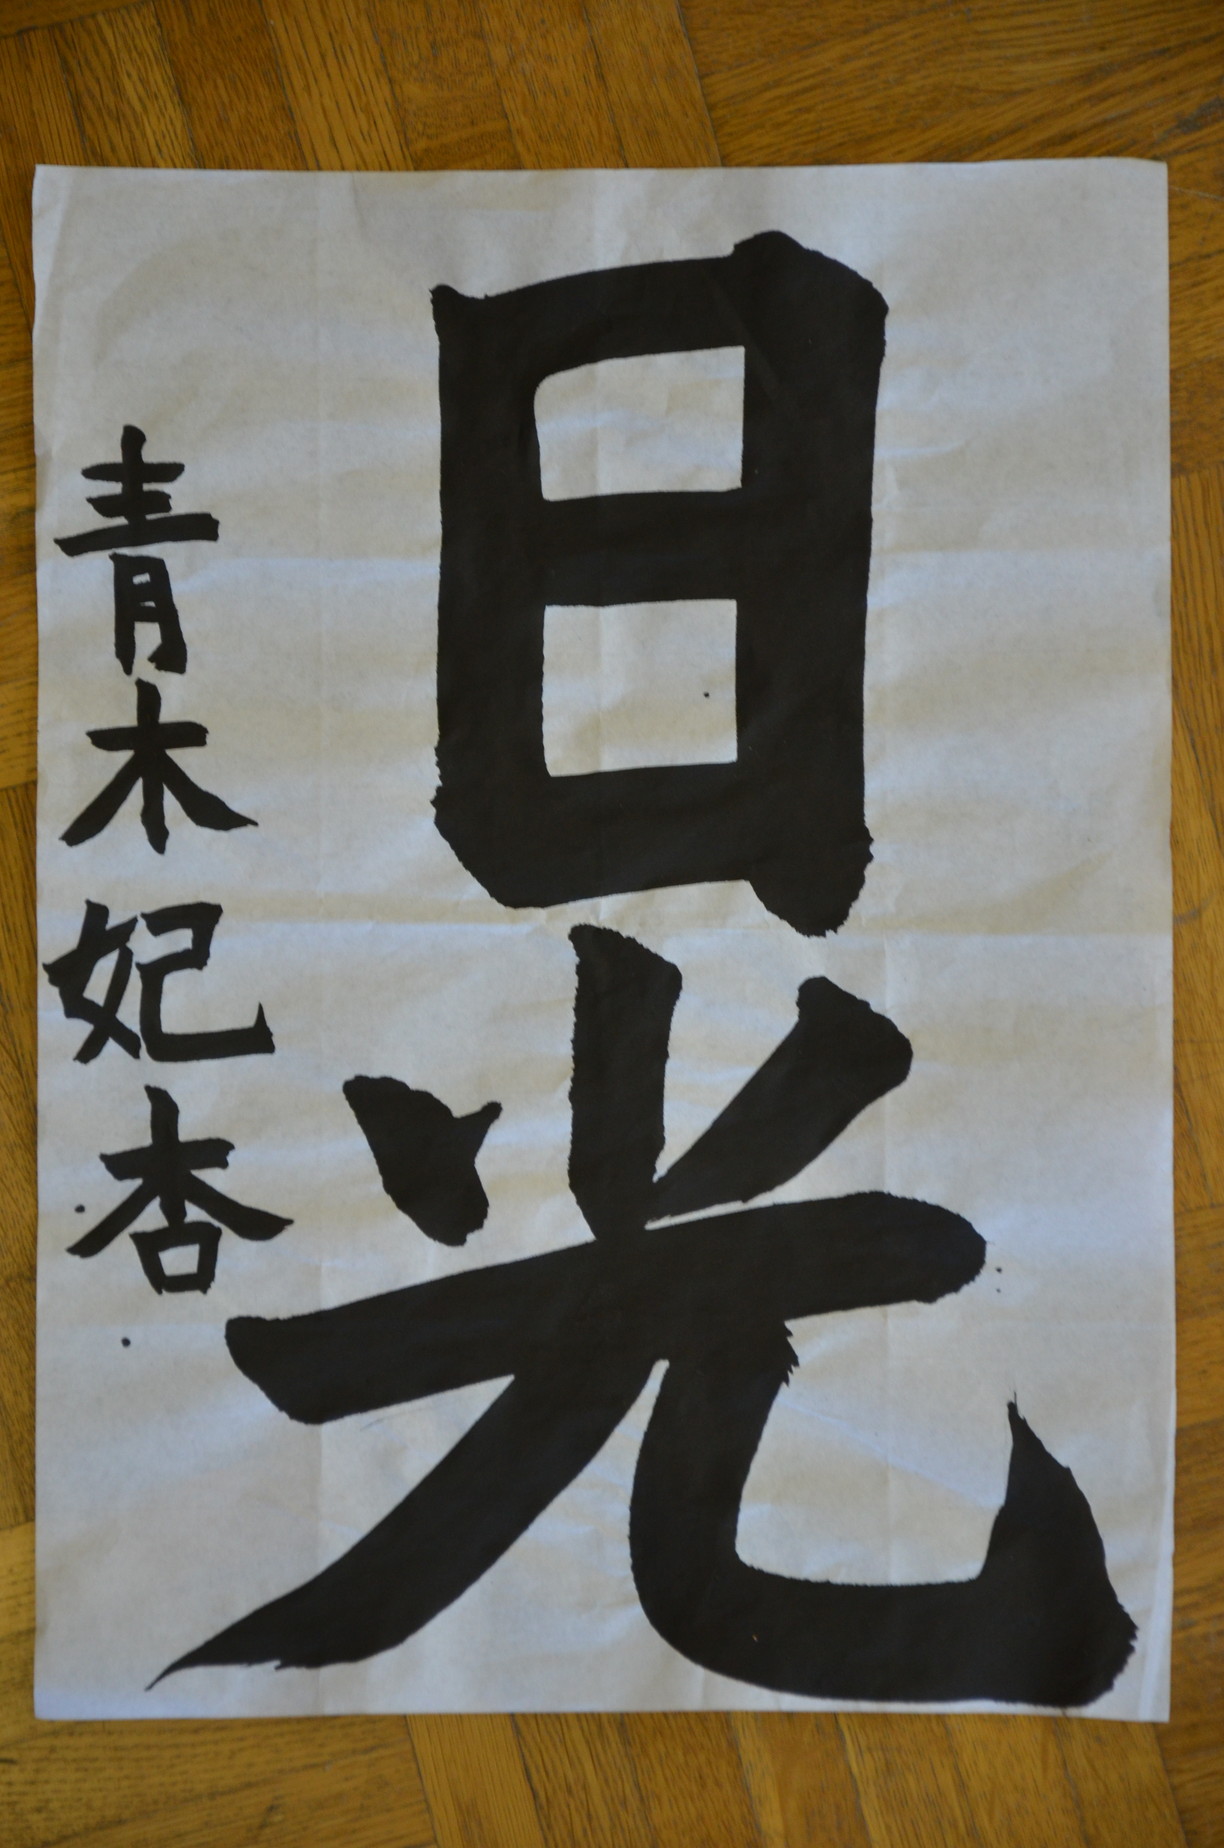 日光
青木妃杏